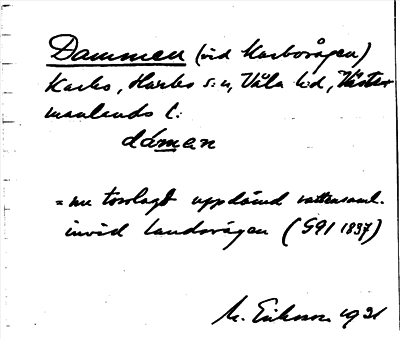 Dammen (vid Karbovågen)
Karbo, Harbo s:n, Våla hd, Väster
manlands l:
dámen
= nu torrlagt uppdämd vattensaml.
invid landsvägen (G91 1837)
M. Eriksson 1931